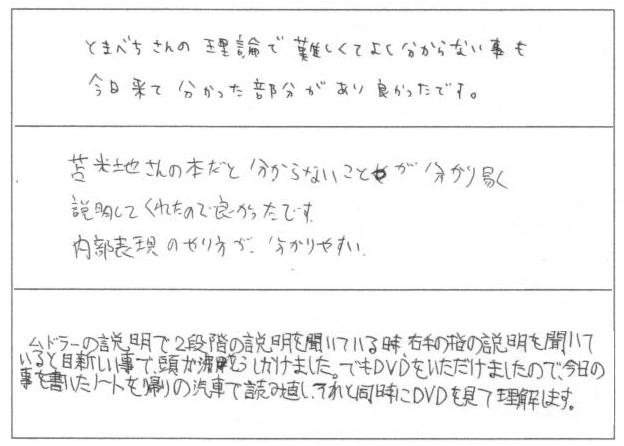 とまべちさんの理論で難しくてよく分からない事も
今日来て分かった部分があり良かったです。
苫米地さんの本だと分からないことが分かり易く
説明してくれたので良かったです.
内部表現のやり方が、分かりやすい.
ムドラーの説明で2段階の説明を聞いている時、右手の指の説明を聞いて
いると目新しい事で、頭が しかけました。でもDVDをいただけましたので、今日の
事を書いたノートを帰りの汽車で読み直し、それと同時にDVDを見て理解します。